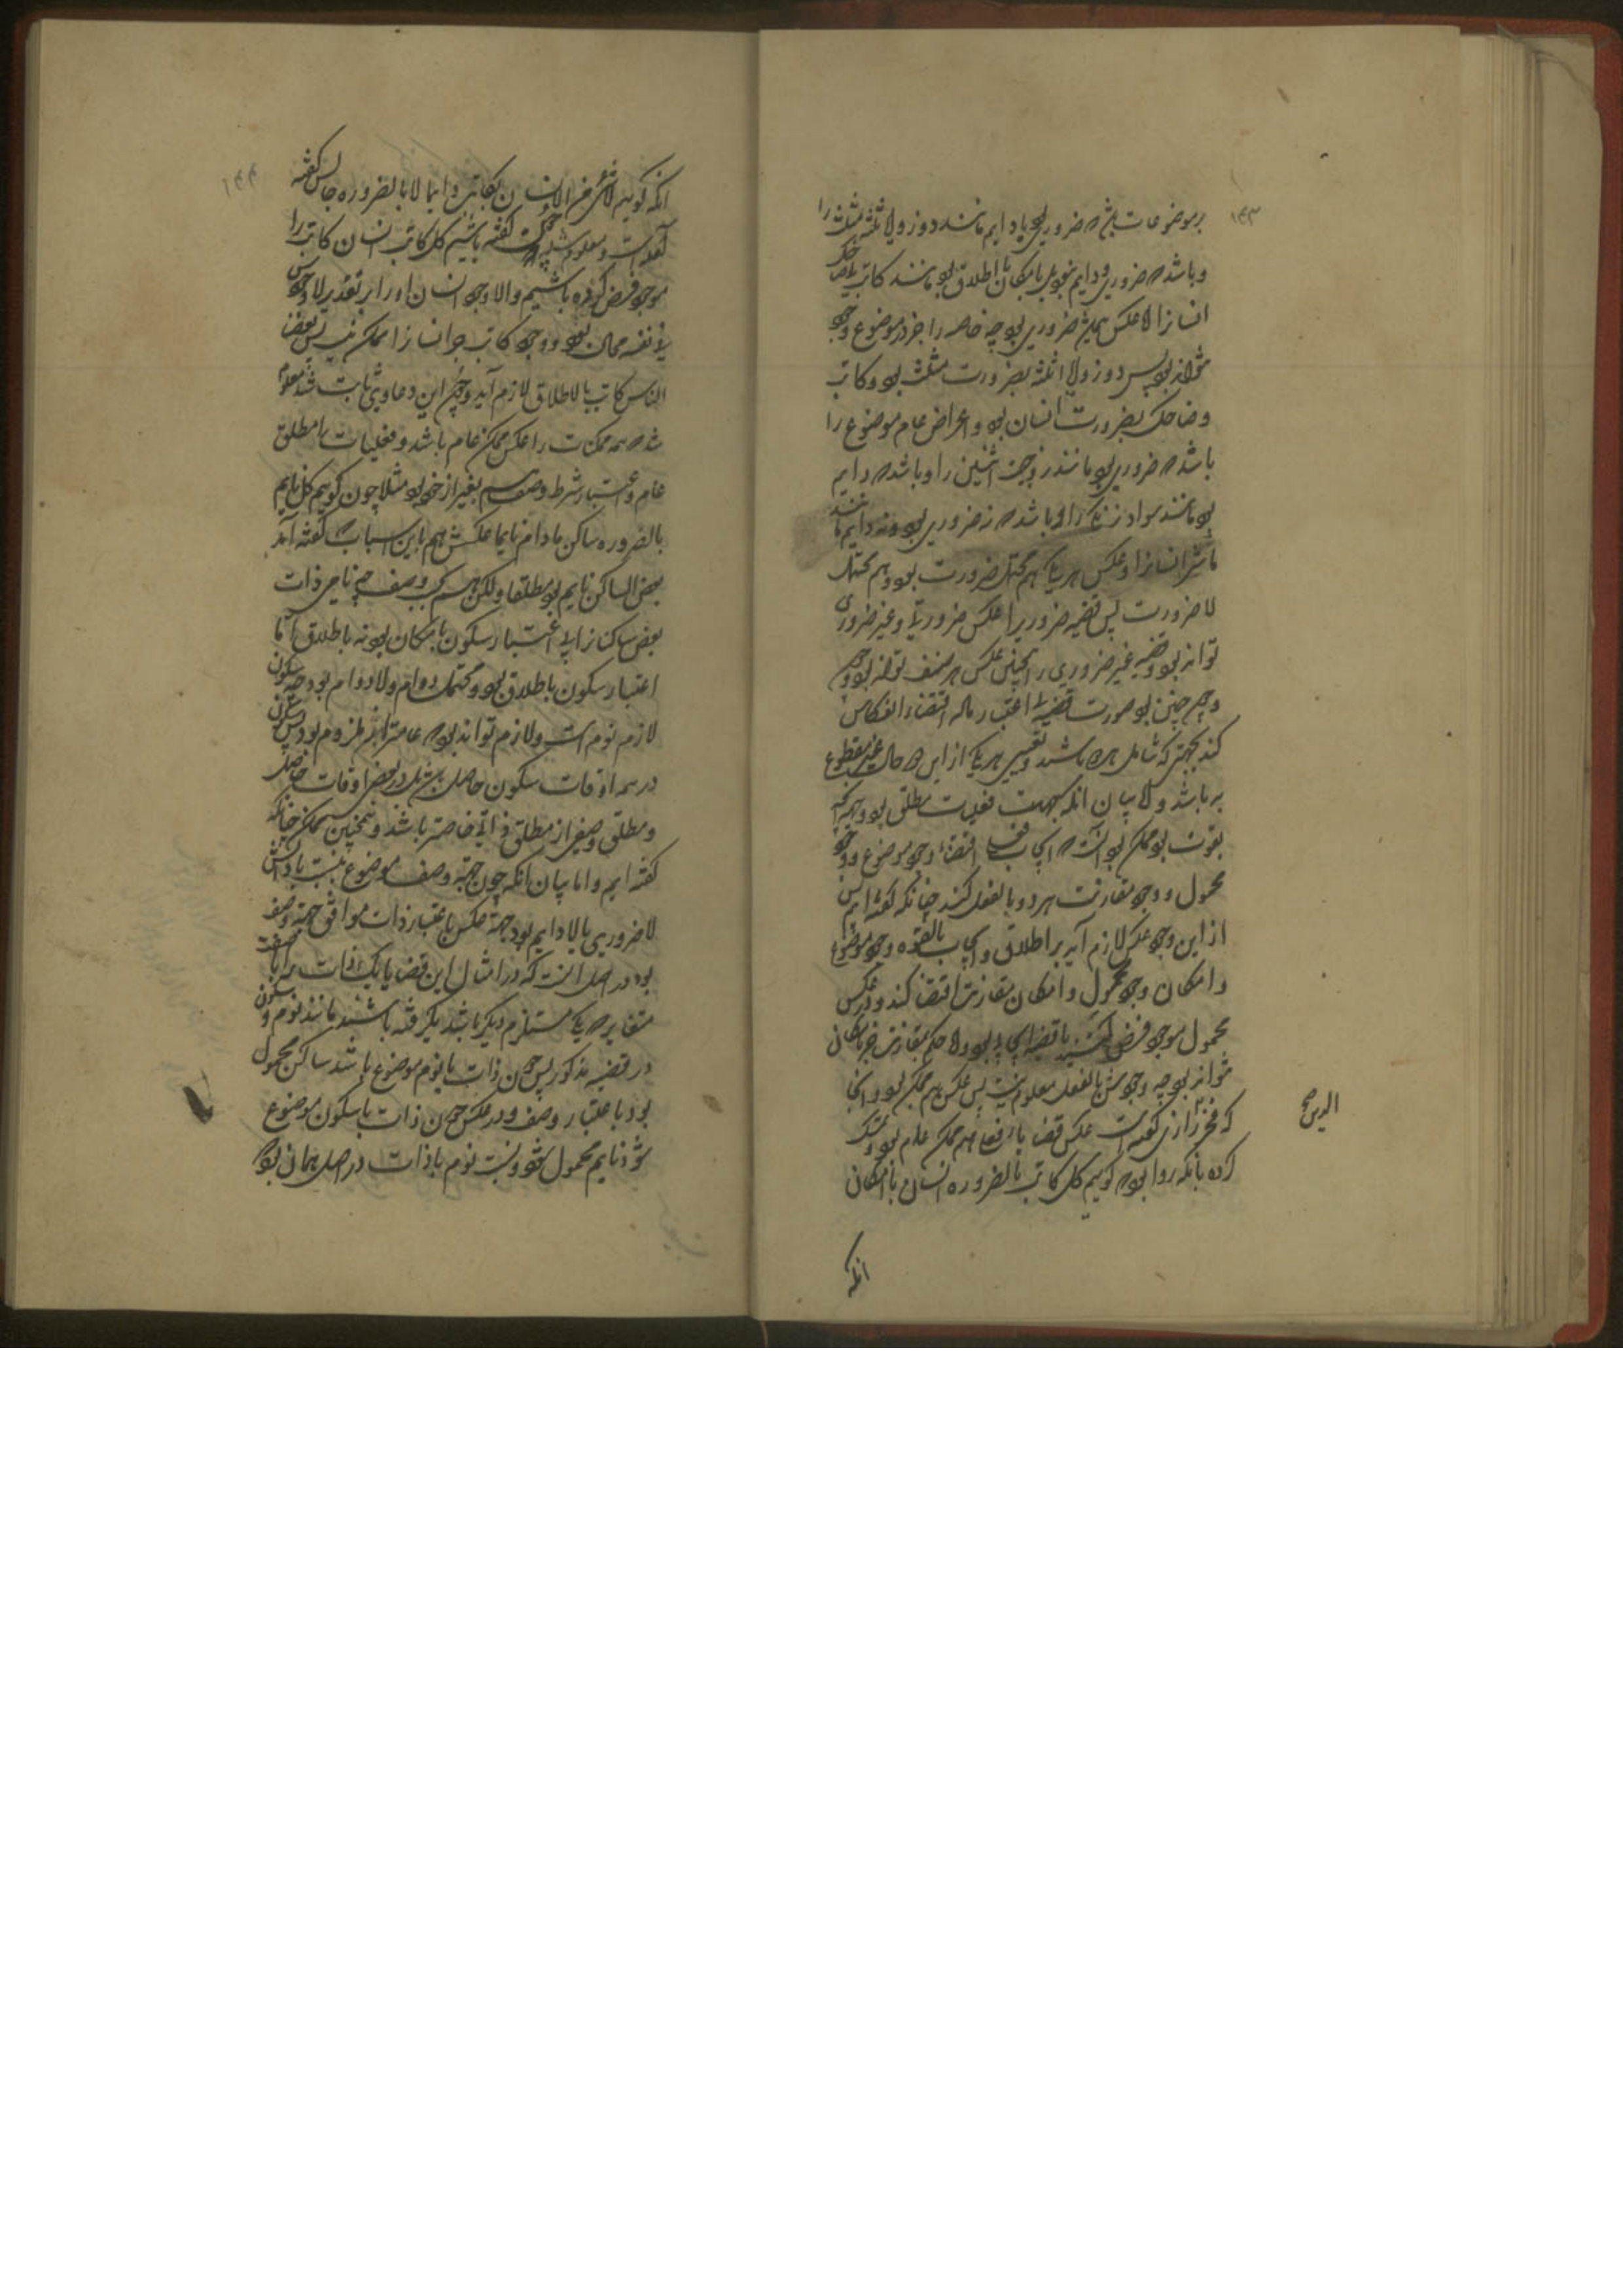 ۱۴۳
بر موضوعات باشد که ضروری بود یا دایم مانند دو زوایا ثلثه مثلث را
و باشد که ضروری و دایم نبود بل بامکان یا اطلاق بود مانند کاتب یا ضاحک
انسانرا اما عکس همیشه ضروری بود چه خاصه را جز در موضوع وجود
نتواند بود پس ذو زوایا ثلثه بضرورت مثلث بود و کاتب
و ضاحک بضرورت انسان بود و اعراض عام موضوع را
باشد که ضروری بود مانند زوجیت اثنین را و باشد که دایم
بود مانند سواد زنگی را و باشد که نه ضروری بود و نه دایم مانند
ماشی انسانرا و عکس هر یک هم محتمل ضرورت بود و هم محتمل
لا ضرورت پس قضیه ضروریرا عکس ضروریه و غیر ضروری
تواند بود و قضیه غیر ضروری را همچنین عکس هر صنف تواند بود و چون
و چون چنین بود صورت قضیه بی اعتبار ماده اقتضاء انعکاس
کند بجهتی که شامل همه باشد و تعیین هر یک از این دو حال غیر مقطوع
به باشد و اما بیان انکه بجهت فعلیات مطلق بود و هر چه
بقوت بود ممکن بود انست که ایجاب فعلی اقتضاء وجود موضوع و وجود
محمول و وجود مقارنت هر دو بالفعل کند چنانکه گفته ایم پس
از این وجود عکس لازم آید بر اطلاق و ایجاب بالقوه وجود موضوع
و امکان وجود محمول و امکان مقارنت اقتضا کند و در عکس
محمول موجود فرض کنند تا قضیه ایجابی بود و لا حکم مقارنت جز بامکان
نتواند بود چه وجودش بالفعل معلوم نیست پس عکس هم ممکن بود و انجا
که فخر رازی گفته است عکس قضایا فعلی هم ممکن عام بود و تمسک
کرده بانکه روا بود که گوییم کل کاتب بالضروره انسان با امکان
الدین صح
انکه
۱۴۴
انکه گوییم لا شیء من الانسان بکاتب دایما لا بالضروره جوابش گفته
آمده است و معلوم شده که چون گفته باشیم کل کاتب انسان کاتب را
موجود فرض کرده باشیم و الا وجود انسان او را بر تقدیر لا وجودش
فی نفسه محال بود و وجود کاتب جز انسانرا ممکن نیست پس بعض
الناس کاتب بالاطلاق لازم آید و چون این دعاوی ثابت شد معلوم
شد که همه ممکنات را عکس ممکن عام باشد و فعلیات را مطلق
عام و اعتبار شرط وصف هم بغیر از خود بود مثلا چون گوییم کل نایم
بالضروره ساکن مادام نایما عکسش هم باین اسباب که گفته آمد
بعض الساکن نایم بود مطلقا و لکن بحسب وصف چه نایم ذات
بعض ساکنانرا بی اعتبار سکون بامکان بود نه باطلاق اما
اعتبار سکون باطلاق بود و محتمل دوام و لا دوام بود چه سکون
لازم نوم است و لازم تواند بود که عامتر از ملزوم بود پس سکون
در همه اوقات سکون حاصل نباشد بل در بعض اوقات حاصل
و مطلق وصفی از مطلق ذاتی خاصتر باشد و همچنین ممکن چنانکه
گفته ایم و اما بیان انکه چون جهت وصف موضوع بنسبت با ذاتش
لا ضروری یا لا دایم بود جهت عکس باعتبار ذات موافق جهت وصف
بود در اصل انست که در امثال این قضایا یک ذات را با دو صفت
متغایر که یک مستلزم دیگر باشد بگرفته باشند مانند نوم و سکون
در قضیه مذکور پس چون ذات با نوم موضوع باشد ساکن محمول
بود باعتبار وصف و در عکس چون ذات با سکون موضوع
شود نایم محمول شود و نسبت نوم با ذات در اصل همان بود که